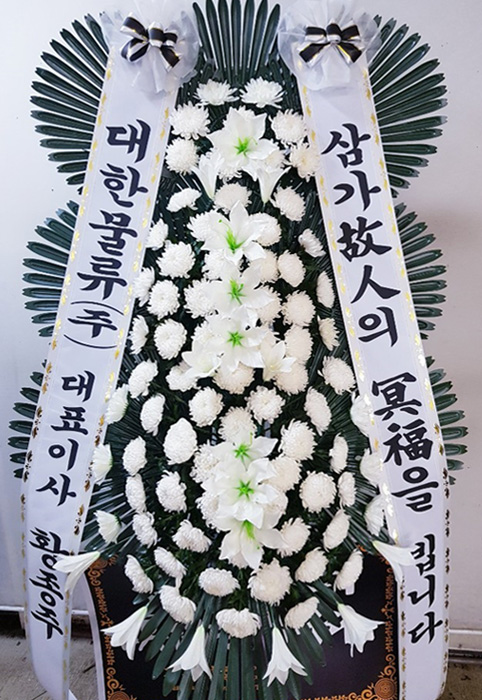 삼가故人의 冥福을 빕니다
대한물류(주) 대표이사 황종주